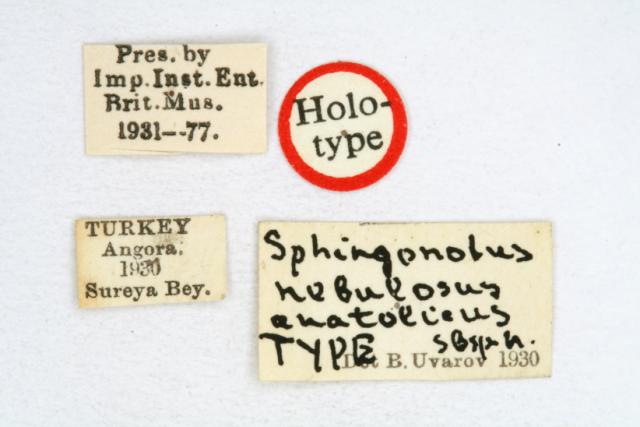 Pres. by
Imp.Inst.Ent.
Brit.Mus.
1931--77.
Holo-
type
TURKEY
Angora.
1930
Sureya Bey.
Sphingonotus
nebulosus
anatolicus
TYPE sbsp. n.
Det B. Uvarov 1930